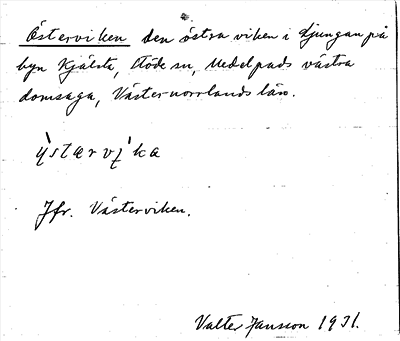 Österviken den östra viken i Ljungan på
byn Kjälsta, Stöde sn, Medelpads västra
domsaga, Västernorrlands län.
ỳstærvị̀ka
Jfr. Västerviken.
Valter Jansson 1931.